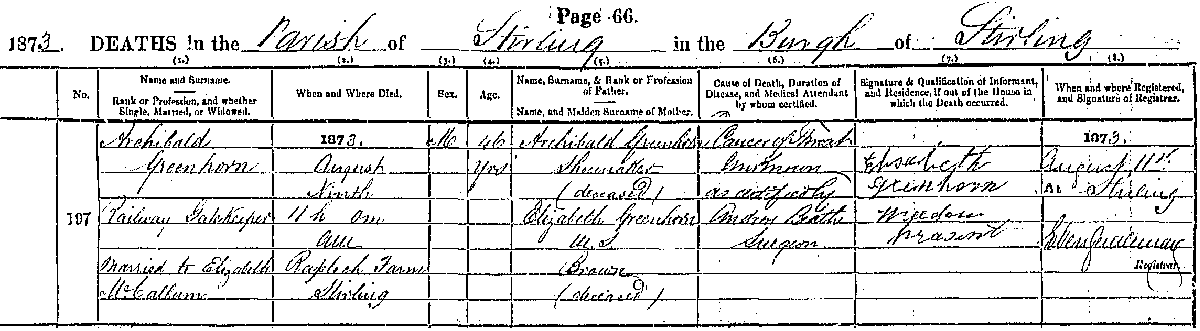 Page 66.
1873. DEATHS in the Parish of Stirling in the Burgh of Stirling
(1.) (2.) (3.) (4.) (5.) (6.) (7.) (8.)
No.
Name and Surname.
Rank or Profession, and whether
Single, Married, or Widowed.
When and Where Died.
Sex.
Age.
Name, Surname, & Rank or Profession
of Father.
Name, and Maiden Surname of Mother.
Cause of Death, Duration of
Disease, and Medical Attendant
by whom certified.
Signature & Qualification of Informant,
and Residence, if out of the House in
which the Death occurred.
When and where Registered,
and Signature of Registrar.
197
Archibald
Greenhorn
Railway Gatekeeper
Married to Elizabeth
McCallum
1873.
August
Ninth
11 h 0 m
AM
Raploch Farm
Stirling
M
46
Yrs
Archibald Greenhorn
Shoemaker
(deceased)
Elizabeth Greenhorn
M.S.
Brown
(deceased)
Cancer of
Unknown
as cert by
Andrew Beath
Surgeon
Elizabeth
Greenhorn
Widow
Present
1873.
August 11th
At Stirling
Registrar.